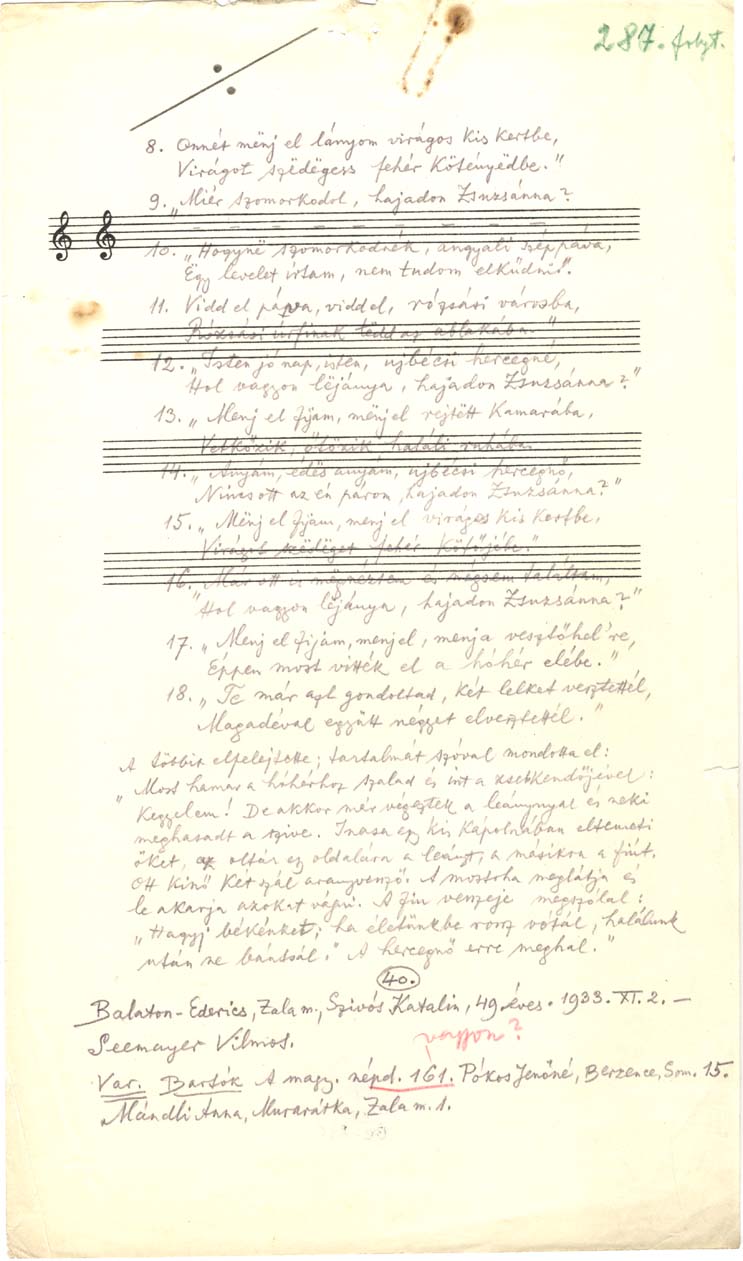 287. folyt.
8. Onnét mënj el lányom virágos kis kertbe,
Virágot szëdëgess fehér kötényëdbe."
9. „Miér szomorkodol, hajadon Zsuzsánna?
10. „Hogynë szomorkodnék, angyali szép páva,
Ëgy levelet irtam, nem tudom elküdni".
11. Vidd el páva, viddel, rózsási városba,
Rózsási úrfinak tëdd az ablakába."
12. „Isten jó nap, isten, ujbécsi hercegné,
Hol vagyon lëjánya, hajadon Zsuzsánna?"
13. „Menj el fijam, mënjel rejtëtt kamarába,
Vetkőzik, ötözik haláli ruhába.
14. „Anyám, édës anyám, ujbécsi hercegnő,
Nincs ott az én párom, hajadon Zsuzsánna?"
15. „Mënj el fijam, menj el virágos kis kertbe,
Virágot szëdëget fehér kötőjébe."
16. Már ott is mëgnéztem és mégsem találtam,
"Hol vagyon lëjánya, hajadon Zsuzsánna?"
17. „Menj el fijam, menjel, menja vesztőhel're,
Éppen most vitték el a hóhér elébe."
18. „Te már azt gondoltad, két lelket vesztettél,
Magadéval együtt négyet elvesztettél."
A többit elfelejtette; tartalmát szóval mondotta el:
"Most hamar a hóhérhoz szalad és int a zsebkendőjével:
Kegyelem! De akkor már végeztek a leánnyal és neki
meghasadt a szive. Inasa egy kis kápolnában eltemeti
őket, az oltár egy oldalára a leányt, a másikra a fiút.
Ott kinő két szál aranyvessző. A mostoha meglátja és
le akarja azokat vágni. A fiu vesszeje megszólal:
„Hagyj békénket; ha életünkbe rossz vótál, halálunk
után ne bántsál." A hercegnő erre meghal."
40.
Balaton-Ederics, Zala m., Szivós Katalin, 49 éves. 1933. XI. 2. –
Seemayer Vilmos.
vagyon?
Var. Bartók A magy. népd. 161. Pókos Jenőné, Berzence, Som. 15.
Mándli Anna, Murarátka, Zala m. 1.